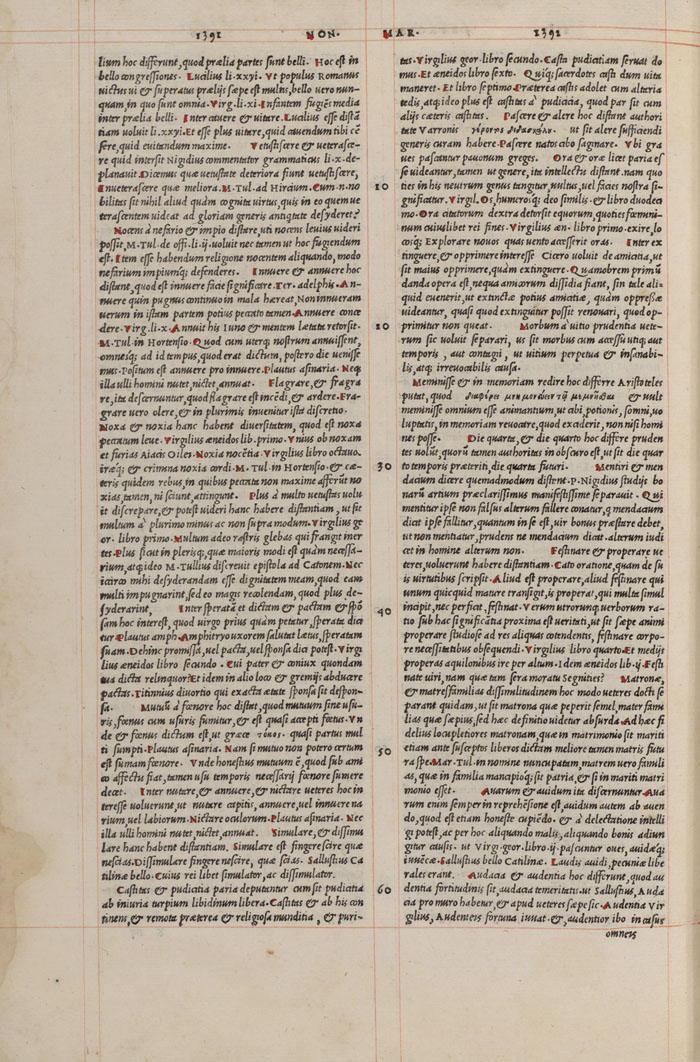 1391 NON. MAR. 1391
lium hoc differunt, quod prælia partes sunt belli. Hoc est in
bello congressiones. Lucilius li.xxyi. Vt populus Romanus
victus ui & superatus prælijs sæpe est multis, bello uero nun-
quam, in quo sunt omnia. Virg.li.xi. Infantem fugiẽs media
inter prælia belli. Inter cauere & uitare. Lucilius esse distã
tiam uoluit li.xxyi. Et esse plus uitare, quid cauendum tibi cẽ
fere, quid euitandum maxime. Vetustiscere & ueterasce-
re quid intersit Nigidius commentator grammaticus li.x.de-
planauit. Dicemus quæ uetustate deteriora fiunt uetustiscere,
Inueterascere quæ meliora. M. Tul. ad Hircium. Cum.n.no
bilitas sit nihil aliud quàm cognita uirtus, quis in eo quem ue
terascentem uideat ad gloriam generis antiqtatẽ desyderet?
Nocens à nefario & impio distare, uti nocens leuius uideri
possit, M. Tul. de offi. li. ij. uoluit nec tamen ut hoc fugiendum
est. Item esse habendum religione nocentem aliquando, modo
nefarium impiumq; defendere. Innuere & annuere hoc
distant, quod est innuere facie significare. Ter. adelphis. An-
nuere quin pugnus continuo in mala hæreat. Non innueram
uerum in istam partem potius peccato tamen. Annuere conce
dere. Virg.li.x. Annuit his Iuno & mentem lætata retorsit.
M. Tul in Hortensio. Quod cum uterq; nostrum annuissent,
omnesq; ad id tempus, quod erat dictum, postero die uenisse
mus. Positum est annuere pro innuere. Plautus asinaria. Neq;
illa ulli homini nutet, nictet, annuat. Flagrare, & fragra
re, ita descernuntur, quod flagrare est incẽdi, & ardere. Fra-
grare uero olere, & in plurimis inuenitur ista discretio.
Noxa & noxia hanc habent diuersitatem, quod est noxa
peccatum leue. Virgilius æneidos lib. primo. Vnius ob noxam
et furias Aiacis Oiles. Noxia nocẽtia. Virgilius libro octauo.
iræq; & crimina noxia cordi. M. Tul. in Hortensio. & cæ-
teris quidem rebus, in quibus peccata non maxime afferũt no
xias, tamen, ni sciunt, attingunt. Plus à multo uetustas uolu
it discrepare, & potest uideri hanc habere distantiam, ut sit
multum à plurimo minus ac non supra modum. Virgilius ge
or. libro primo. Multum adeo rastris glebas qui frangit iner
tes. Plus sicut in plerisq;, quæ maioris modi est quàm necessa-
rium, atq; ideo M. Tullius discreuit epistola ad Catonem. Nec
idcirco mihi desyderandam esse dignitatem meam, quod eam
multi impugnarint, sed eo magis recolendam, quod plus de-
syderarint, Inter speratã et dictam & pactam & spõ
sam hoc interest, quod uirgo prius quàm petatur, sperata dica
tur. Plautus amph. Amphitryo uxorem salutat lætus, speratam
suam. Dehinc promissa, uel pacta, uel sponsa dici potest. Virgi
lius æneidos libro secundo. Cui pater & coniux quondam
tua dicta relinquor? Et idem in alio loco & gremijs abducere
pactas. Titinnius diuortio qui exacta ætate sponsa sit despon-
sa. Mutuũ à fœnore hoc distat, quod mutuum sine usu-
ris, fœnus cum usuris sumitur, & est quasi accepti fœtus. Vn
de & fœnus dictum est, ut græce τόκος. quasi partus mul
ti sumpti. Plautus asinaria. Nam si mutuo non potero certum
est sumam fœnore. Vnde honestius mutuum ẽ, quod sub ami
co affectu fiat, tamen usu temporis necessarij fœnore sumere
decet. Inter nutare, & annuere, & nictare ueteres hoc in
teresse uoluerunt, ut nutare capitis, annuere, uel innuere na
rium, uel labiorum. Nictare oculorum. Plautus asinaria. Nec
illa ulli homini nutet, nictet, annuat. Simulare, & dissimu
lare hanc habent distantiam. Simulare est fingere scire quæ
nescias. Dissimulare fingere nescire, quæ scias. Sallustius Ca
tilinæ bello. Cuius rei libet simulator, ac dissimulator.
Castitas & pudicitia paria deputantur cum sit pudicitia
ab iniuria turpium libidinum libera. Castitas & ab his con
tinens, & remota præterea & religiosa munditia, & puri-
tas. Virgilius geor. libro secundo. Casta pudicitiam seruat do
mus. Et æneidos libro sexto. Quiq; sacerdotes casti dum uita
maneret. Et libro septimo. Præterea castis adolet cum altaria
tedis, atq; ideo plus est castitas à pudicitia, quod par sit cum
alijs cæteris castitas. Pascere & alere hoc distant authori
tate Varronis ut sit alere sufficiendi
generis curam habere. Pascere natos cibo saginare. Vbi gra
ues pascantur pauonum greges. Ora & oræ licet paria es
se uideantur, tamen ut genere, ita intellectu distant. nam quo
ties in his neutrum genus tangitur, uultus, uel facies nostra si-
gnificatur. Virgil. Os, humerosq; deo similis. & libro duodeci
mo. Ora citatorum dextra detorsit equorum, quoties fœmini-
num cuiuslibet rei fines. Virgilius æn. libro primo. exire, lo
cosq; Explorare nouos quas uento accesserit oras. Inter ex
tinguere, & opprimere interesse Cicero uoluit de amicitia, ut
sit maius opprimere, quàm extinguere. Quamobrem primũ
danda opera est, nequa amicorum dissidia fiant, sin tale ali-
quid euenerit, ut extinctæ potius amicitiæ, quàm oppressæ
uideantur, quasi quod extinguitur possit renouari, quod op-
primitur non queat. Morbum à uitio prudentia uete-
rum sic uoluit separari, ut sit morbus cum accessu utiq; aut
temporis, aut contagi, ut uitium perpetua & insanabi-
lis, atq; irreuocabilis causa.
Meminisse & in memoriam redire hoc differre Aristoteles
putat, quod & uult
meminisse omnium esse animantium, ut cibi, potionis, somni, uo
luptatis, in memoriam reuocare, quod exciderit, non nisi homi
nes posse. Die quarta, & die quarto hoc differe pruden
tes uolũt, quorũ tamen authoritas in obscuro est, ut sit die quar
to temporis præteriti, die quarta futuri. Mentiri & men
dacium dicere quemadmodum distent. P. Nigidius studijs bo
narũ artium præclarissimus manifestissime separauit. Qui
mentitur ipse non falsus alterum fallere conatur, q mendacium
dicit ipse fallitur, quantum in se est, uir bonus præstare debet,
ut non mentiatur, prudens ne mendacium dicat. alterum iudi
cet in homine alterum non. Festinare & properare ue
teres, uoluerunt habere distantiam. Cato oratione, quam de su
is uirtutibus scripsit. Aliud est properare, aliud festinare qui
unum quicquid mature transigit, is properat, qui multa simul
incipit, nec perficit, festinat. Verum utrorunq; uerborum ra-
tio sub hac significãtia proxima est ueritati, ut sit sæpe animi
properare studiose ad res aliquas contendentis, festinare corpo-
re necessitatibus obsequendi. Virgilius libro quarto. Et medijs
properas aquilonibus ire per altum. Idem æneidos lib. ij. Festi
nate uiri, nam quæ tam sera moratur Segnities? Matronæ,
& matresfamilias dissimilitudinem hoc modo ueteres docti se
parant quidam, ut sit matrona quæ peperit semel, mater fami
lias quæ sæpius, sed hæc definitio uidetur absurda. Ad hæc fi
delius locupletiores matronam, quæ in matrimonio sit mariti
etiam ante susceptos liberos dictam meliore tamen matris futu
ra spe. Mar. Tul. in nomine nuncupatam, matrem uero famili
as, quæ in familia mancipioq; sit patria, & si in mariti matri
monio esset. Auarum & auidum ita discernuntur. Aua
rum enim semper in reprehẽsione est, auidum autem ab auen
do, quod est etiam honeste cupiẽdo. & à delectatione intelli
gi potest, ac per hoc aliquando malis, aliquando bonis adiun
gitur causis. ut Virgi. geor. libro. ij. pascuntur oues, auidæq;
iuuẽcæ. Sallustius bello Catilinæ. Laudis auidi, pecuniæ libe
rales erant. Audacia & audentia hoc differunt, quod au
dentia fortitudinis sit, audacia temeritatis. ut Sallustius, Auda
cia pro muro habetur, & apud ueteres sæpe sic. Audentia Vir
gilius, Audenteis fortuna iuuat. &, audentior ibo in casus
omneis
10
20
30
40
50
60